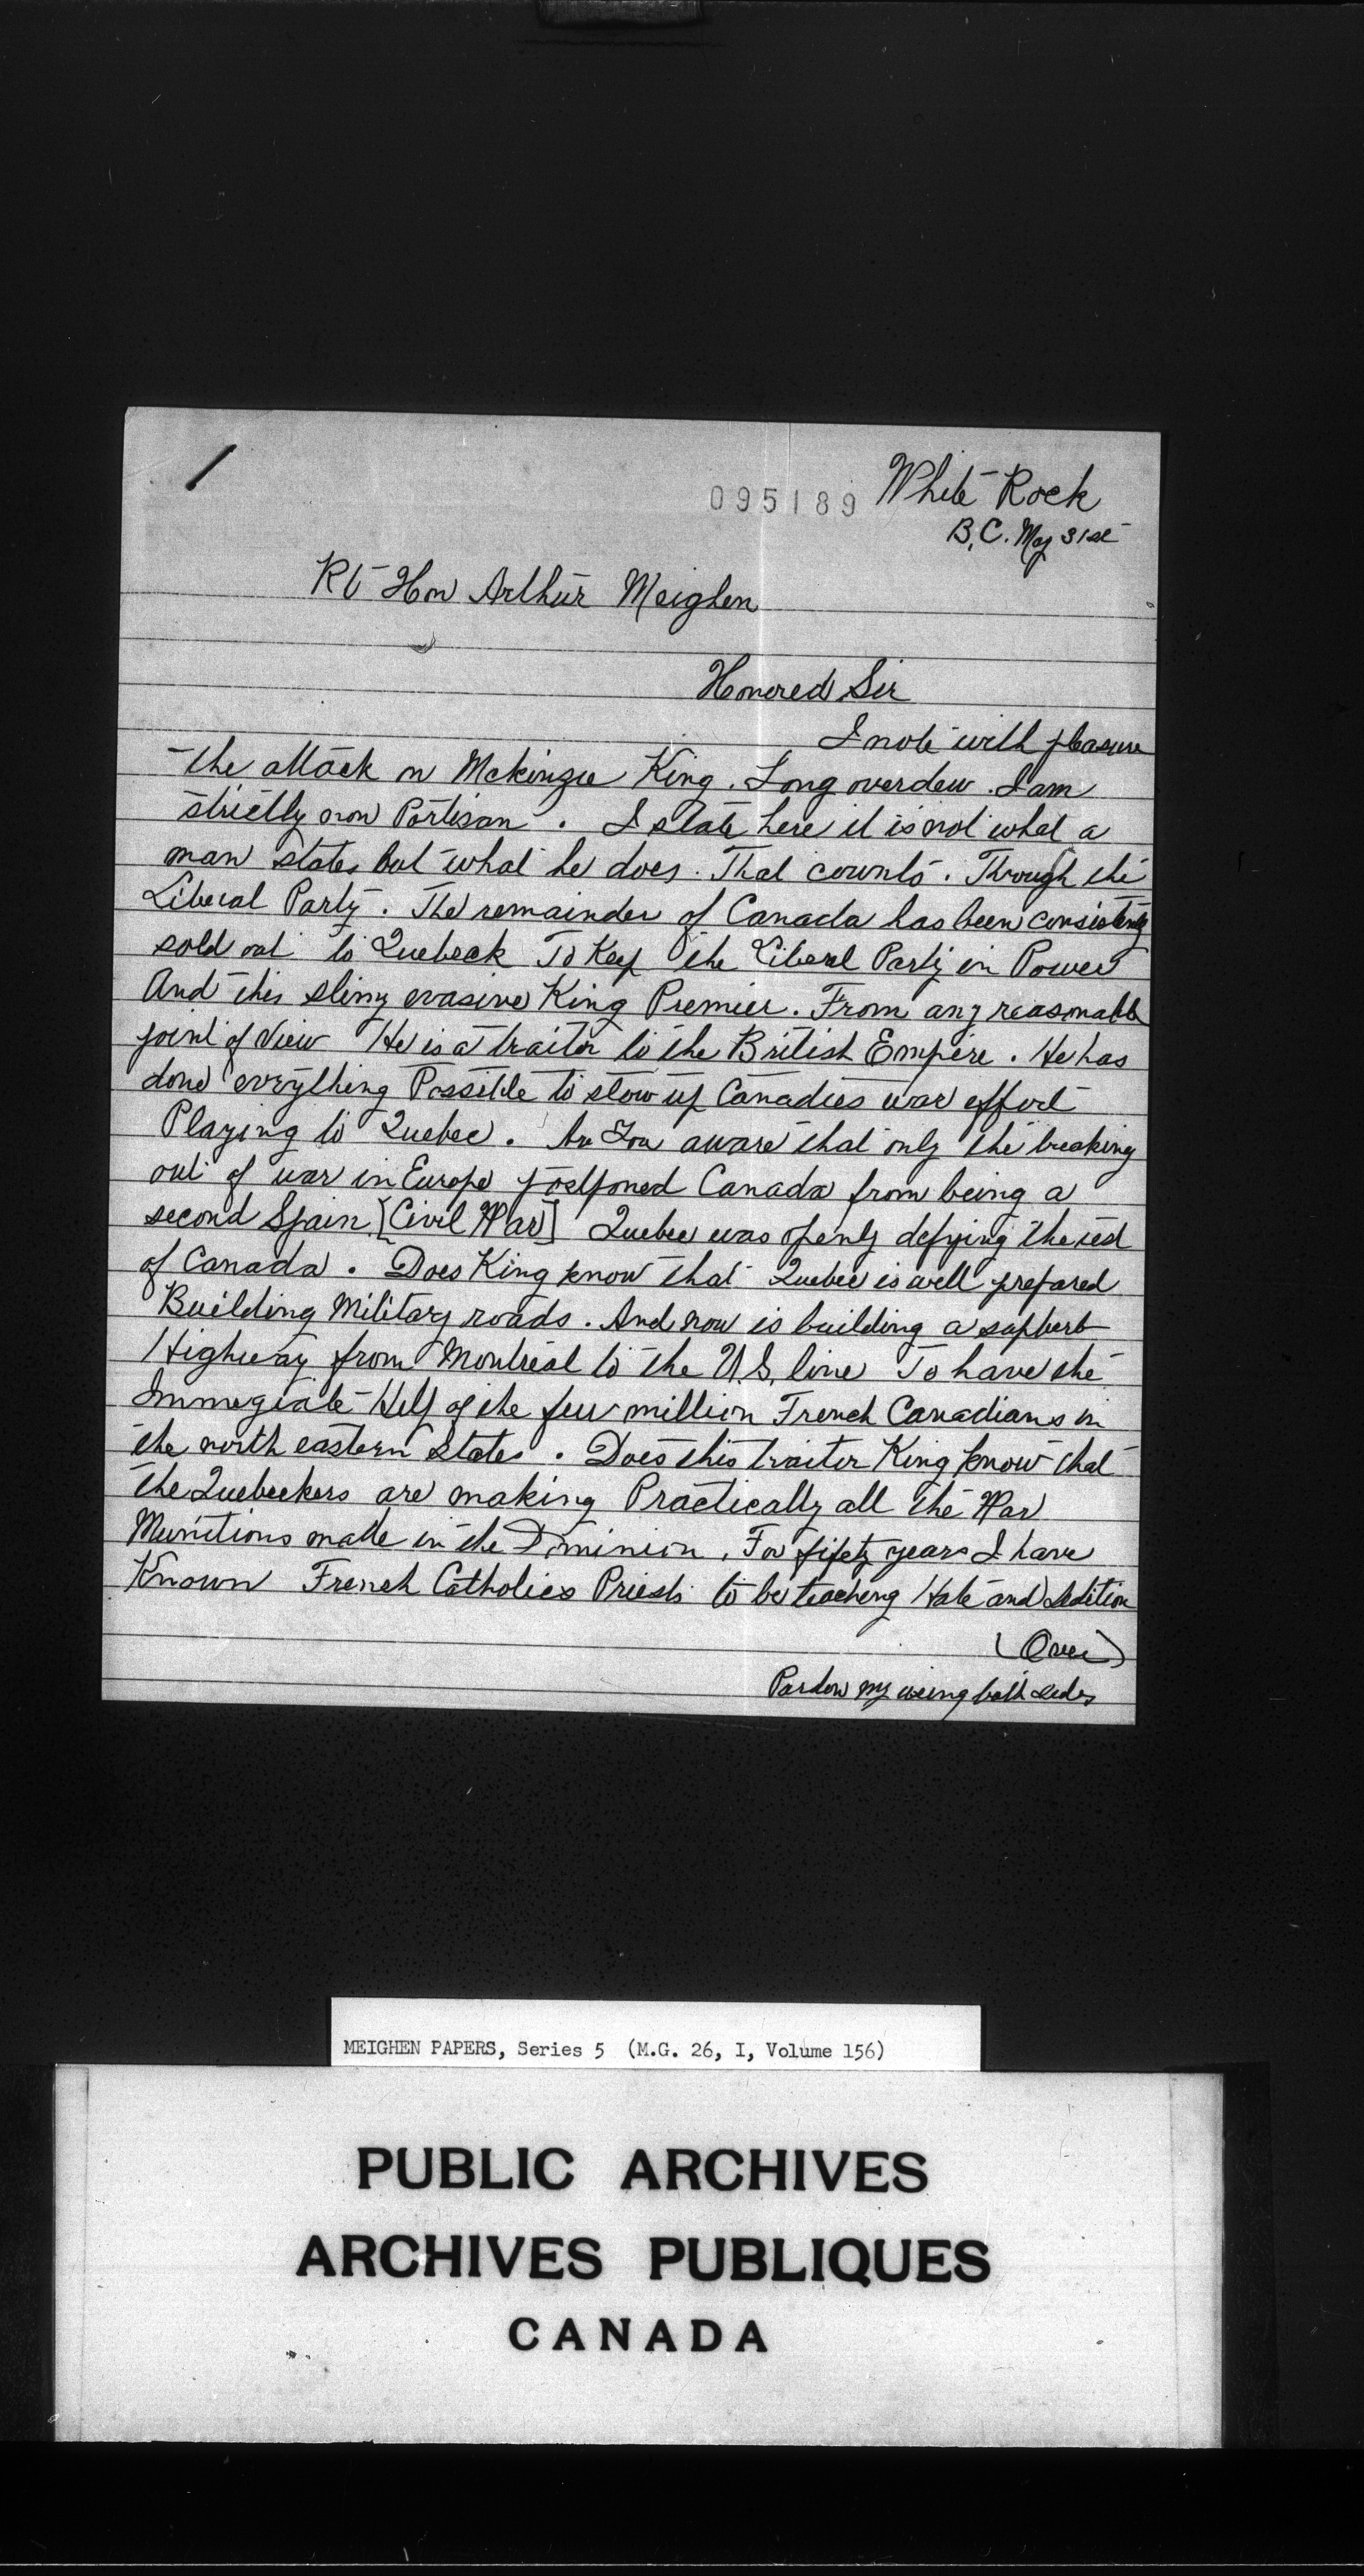 095189 White Rock
B.C. May 31st
Rt Hon Arthur Meighen
Honored Sir
I note with pleasure
the attack on Mckinzie King. Long overdew. I am
strictly non Partisan. I state here it is not what a
man states but what he does. That counts. Through the
Liberal Party. The remainder of Canada has been consistently
sold out to Quebeck To Keep the Liberal Party in Power
And this slimy evasive King Premier. From any reasonable
point of View He is a traitor to the British Empire. He has
done everything Possible to slow up Canadies war effort
Playing to Quebec. Are You aware that only the breaking
out of war in Europe postponed Canada from being a
second Spain [Civil War] Quebec was openly defying the rest
of Canada. Does King know that Quebec is well prepared
Building Military roads. And now is building a supberb
Highway from Montreal to the U.S. line To have the
Immegiate Help of the few million French Canadians in
the north eastern States. Does this traitor King know that
the Quebeckers are making Practically all the War
Munitions made in the Dominion. For fifety years I have
Known French Catholics Priests to be teaching Hate and Sedition
(Over)
Pardon my using both sides
MEIGHEN PAPERS, Series 5 (M.G. 26, I, Volume 156)
PUBLIC ARCHIVES
ARCHIVES PUBLIQUES
CANADA